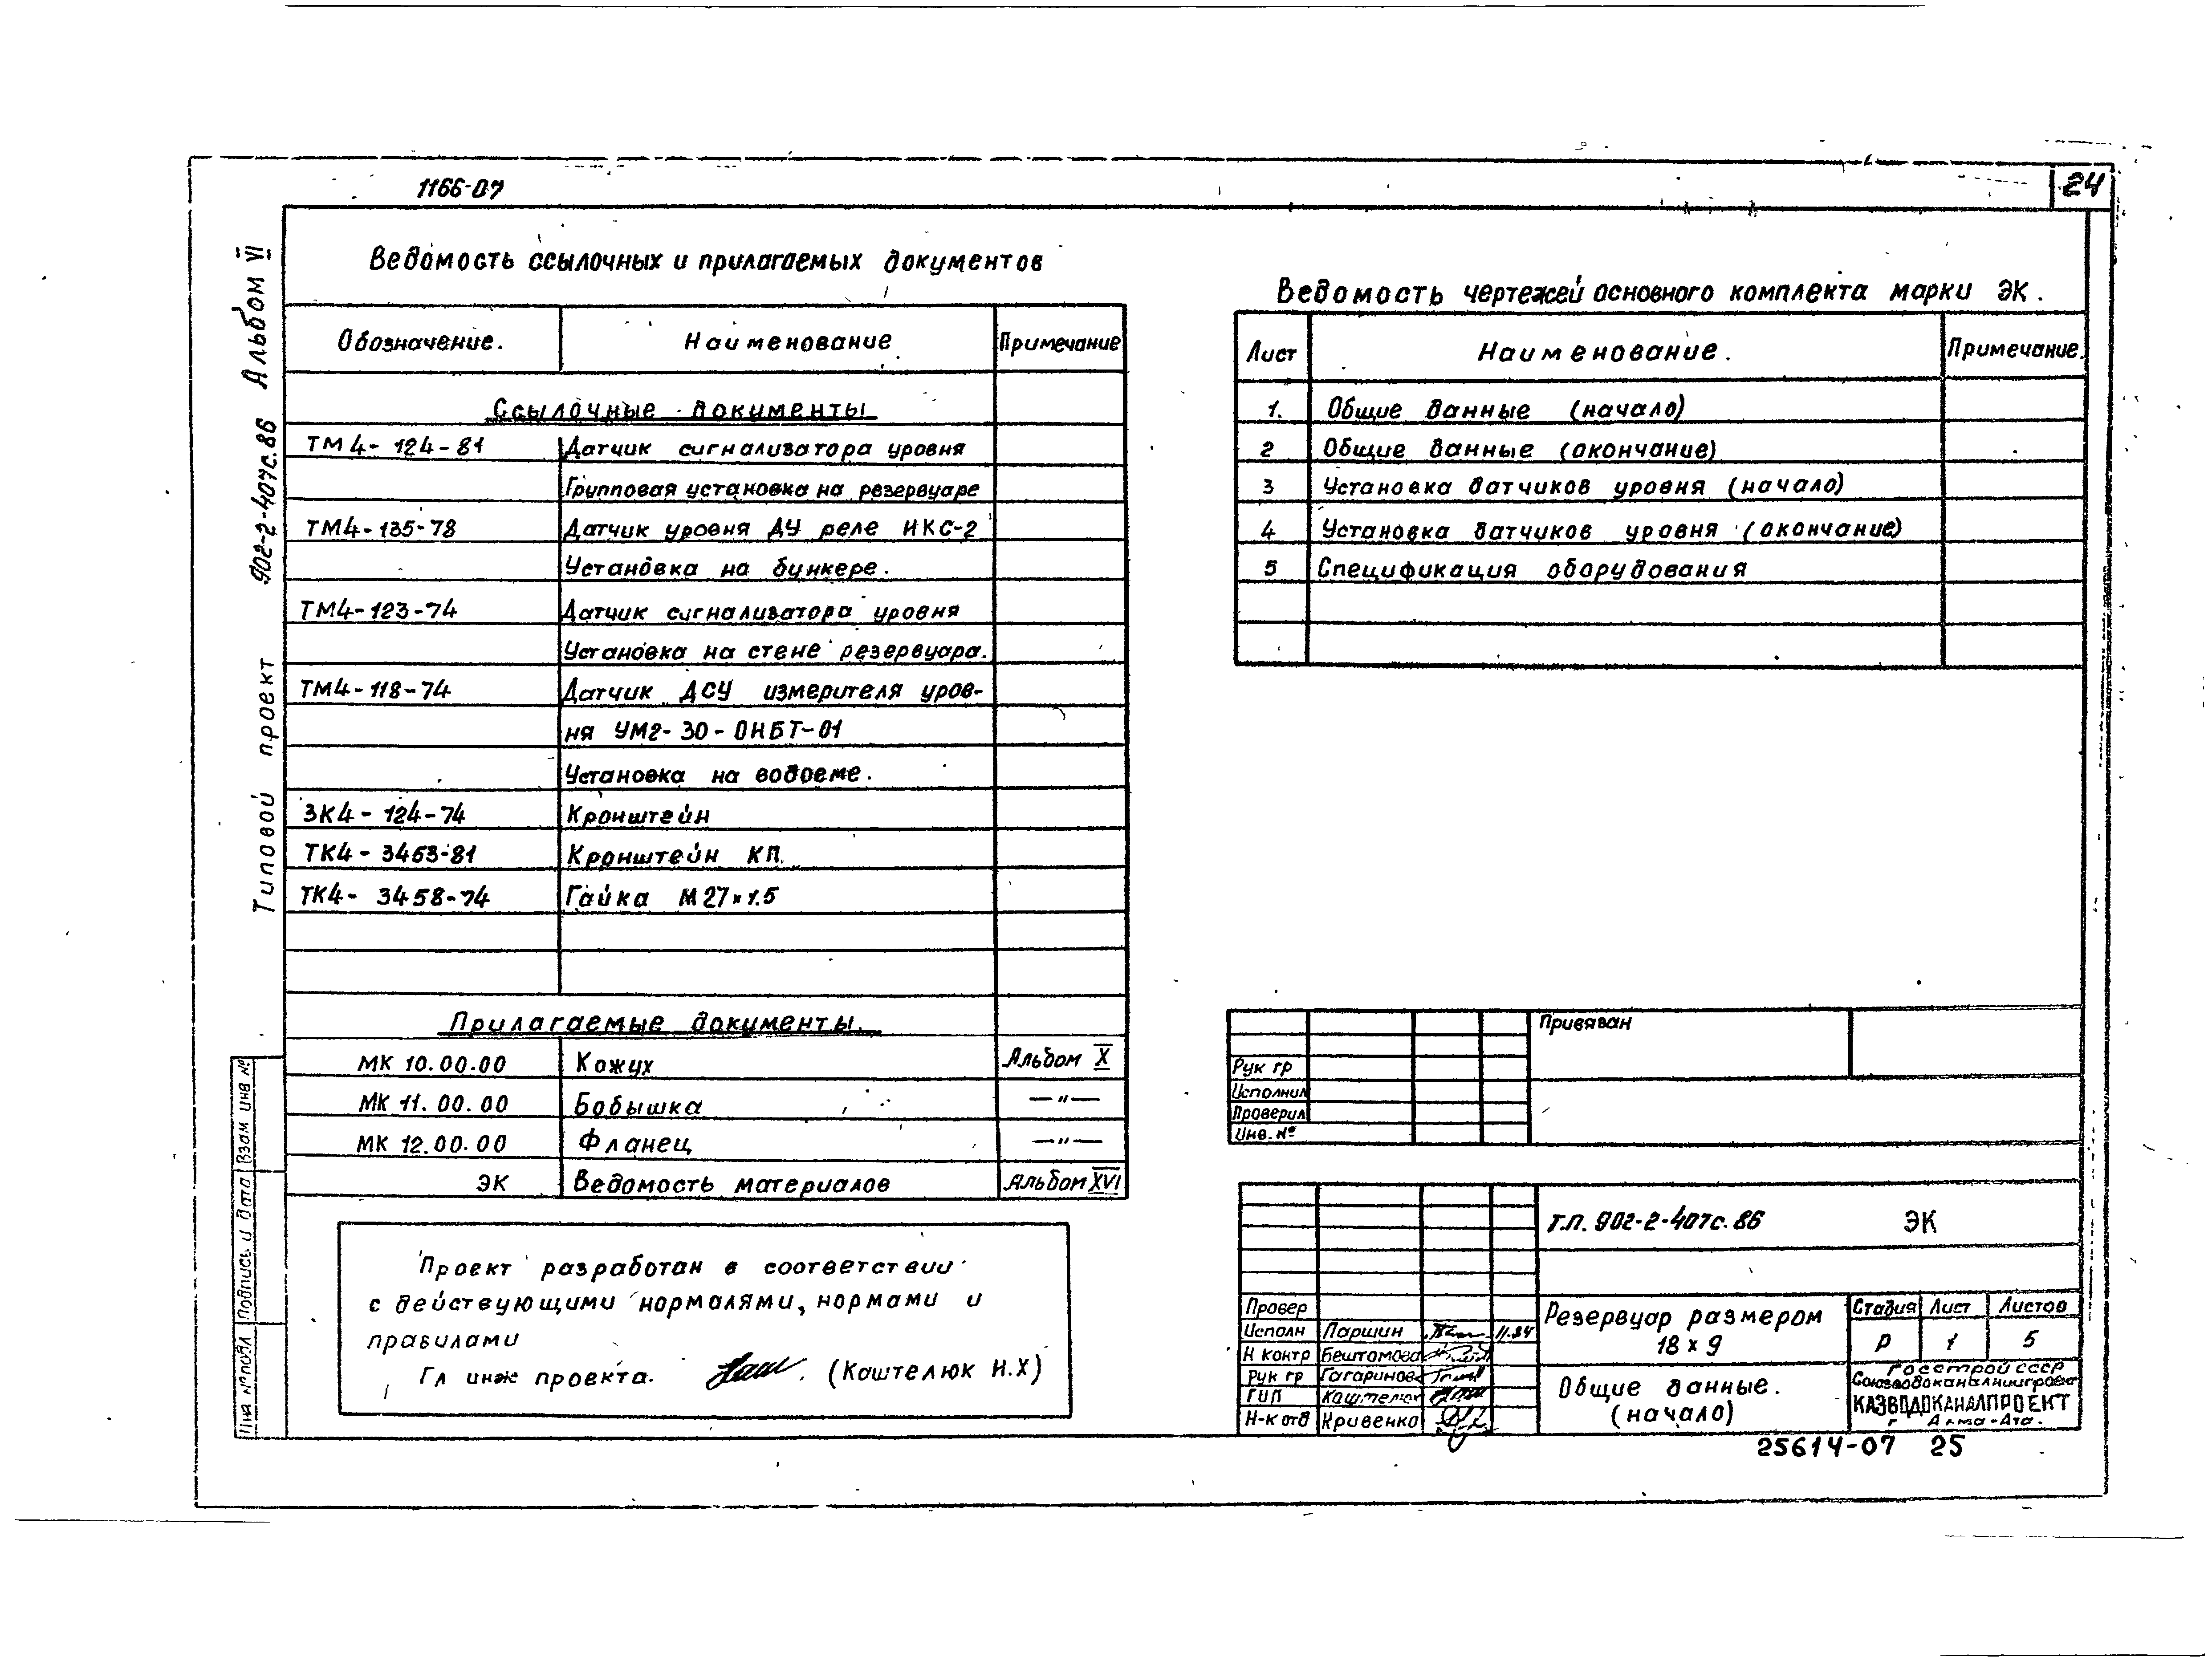 1166-07
24
Типовой проект 902-2-407с.86 Альбом VI
Ведомость ссылочных и прилагаемых документов
Обозначение. Наименование Примечание
Ссылочные документы
ТМ4-124-81 Датчик сигнализатора уровня
Групповая установка на резервуаре
ТМ4-135-78 Датчик уровня ДУ реле ИКС-2
Установка на бункере.
ТМ4-123-74 Датчик сигнализатора уровня
Установка на стене резервуара.
ТМ4-118-74 Датчик ДСУ измерителя уров-
ня УМ2-30-ОНБТ-01
Установка на водоеме.
ЗК4-124-74 Кронштейн
ТК4-3453-81 Кронштейн КП.
ТК4-3458-74 Гайка М27×1.5
Прилагаемые документы.
МК 10.00.00 Кожух Альбом X
МК 11.00.00 Бобышка —"—
МК 12.00.00 Фланец —"—
ЭК Ведомость материалов Альбом XVI
Проект разработан в соответствии
с действующими нормалями, нормами и
правилами
Гл инж проекта. (Каштелюк Н.Х)
Инв № подл Подпись и дата Взам инв №
Ведомость чертежей основного комплекта марки ЭК.
Лист Наименование. Примечание.
1. Общие данные (начало)
2 Общие данные (окончание)
3 Установка датчиков уровня (начало)
4 Установка датчиков уровня (окончание)
5 Спецификация оборудования
Привязан
Рук гр
Исполнил
Проверил
Инв. №
Т.П. 902-2-407с.86 ЭК
Провер
Исполн Паршин 11.84
Н контр Бештомова
Рук гр Гагаринова
ГИП Каштелюк
Н-к отд Кривенко
Резервуар размером
18 × 9
Общие данные.
(начало)
Стадия Лист Листов
Р 1 5
Госстрой СССР
Союзводоканалниипроект
КАЗВОДОКАНАЛПРОЕКТ
г Алма-Ата.
25614-07 25